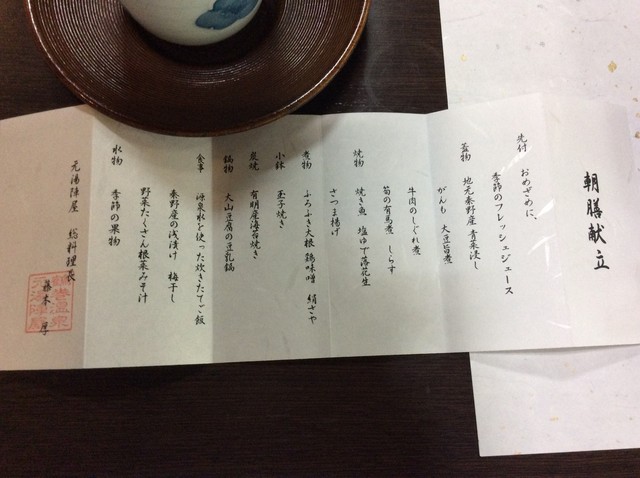 朝膳献立
先付 おめざめに、
季節のフレッシュジュース
蓋物 地元秦野産 青菜浸し
がんも 大豆旨煮
牛肉のしぐれ煮
筍の有馬煮 しらす
焼物 焼き魚 塩ゆで落花生
さつま揚げ
煮物 ふろふき大根 鶏味噌 絹さや
小鉢 玉子焼き
炭焼 有明産海苔焼き
鍋物 大山豆腐の豆乳鍋
食事 源泉水を使った炊きたてご飯
秦野産の浅漬け 梅干し
野菜たくさん根菜みそ汁
水物 季節の果物
元湯陣屋 総料理長
藤本 厚